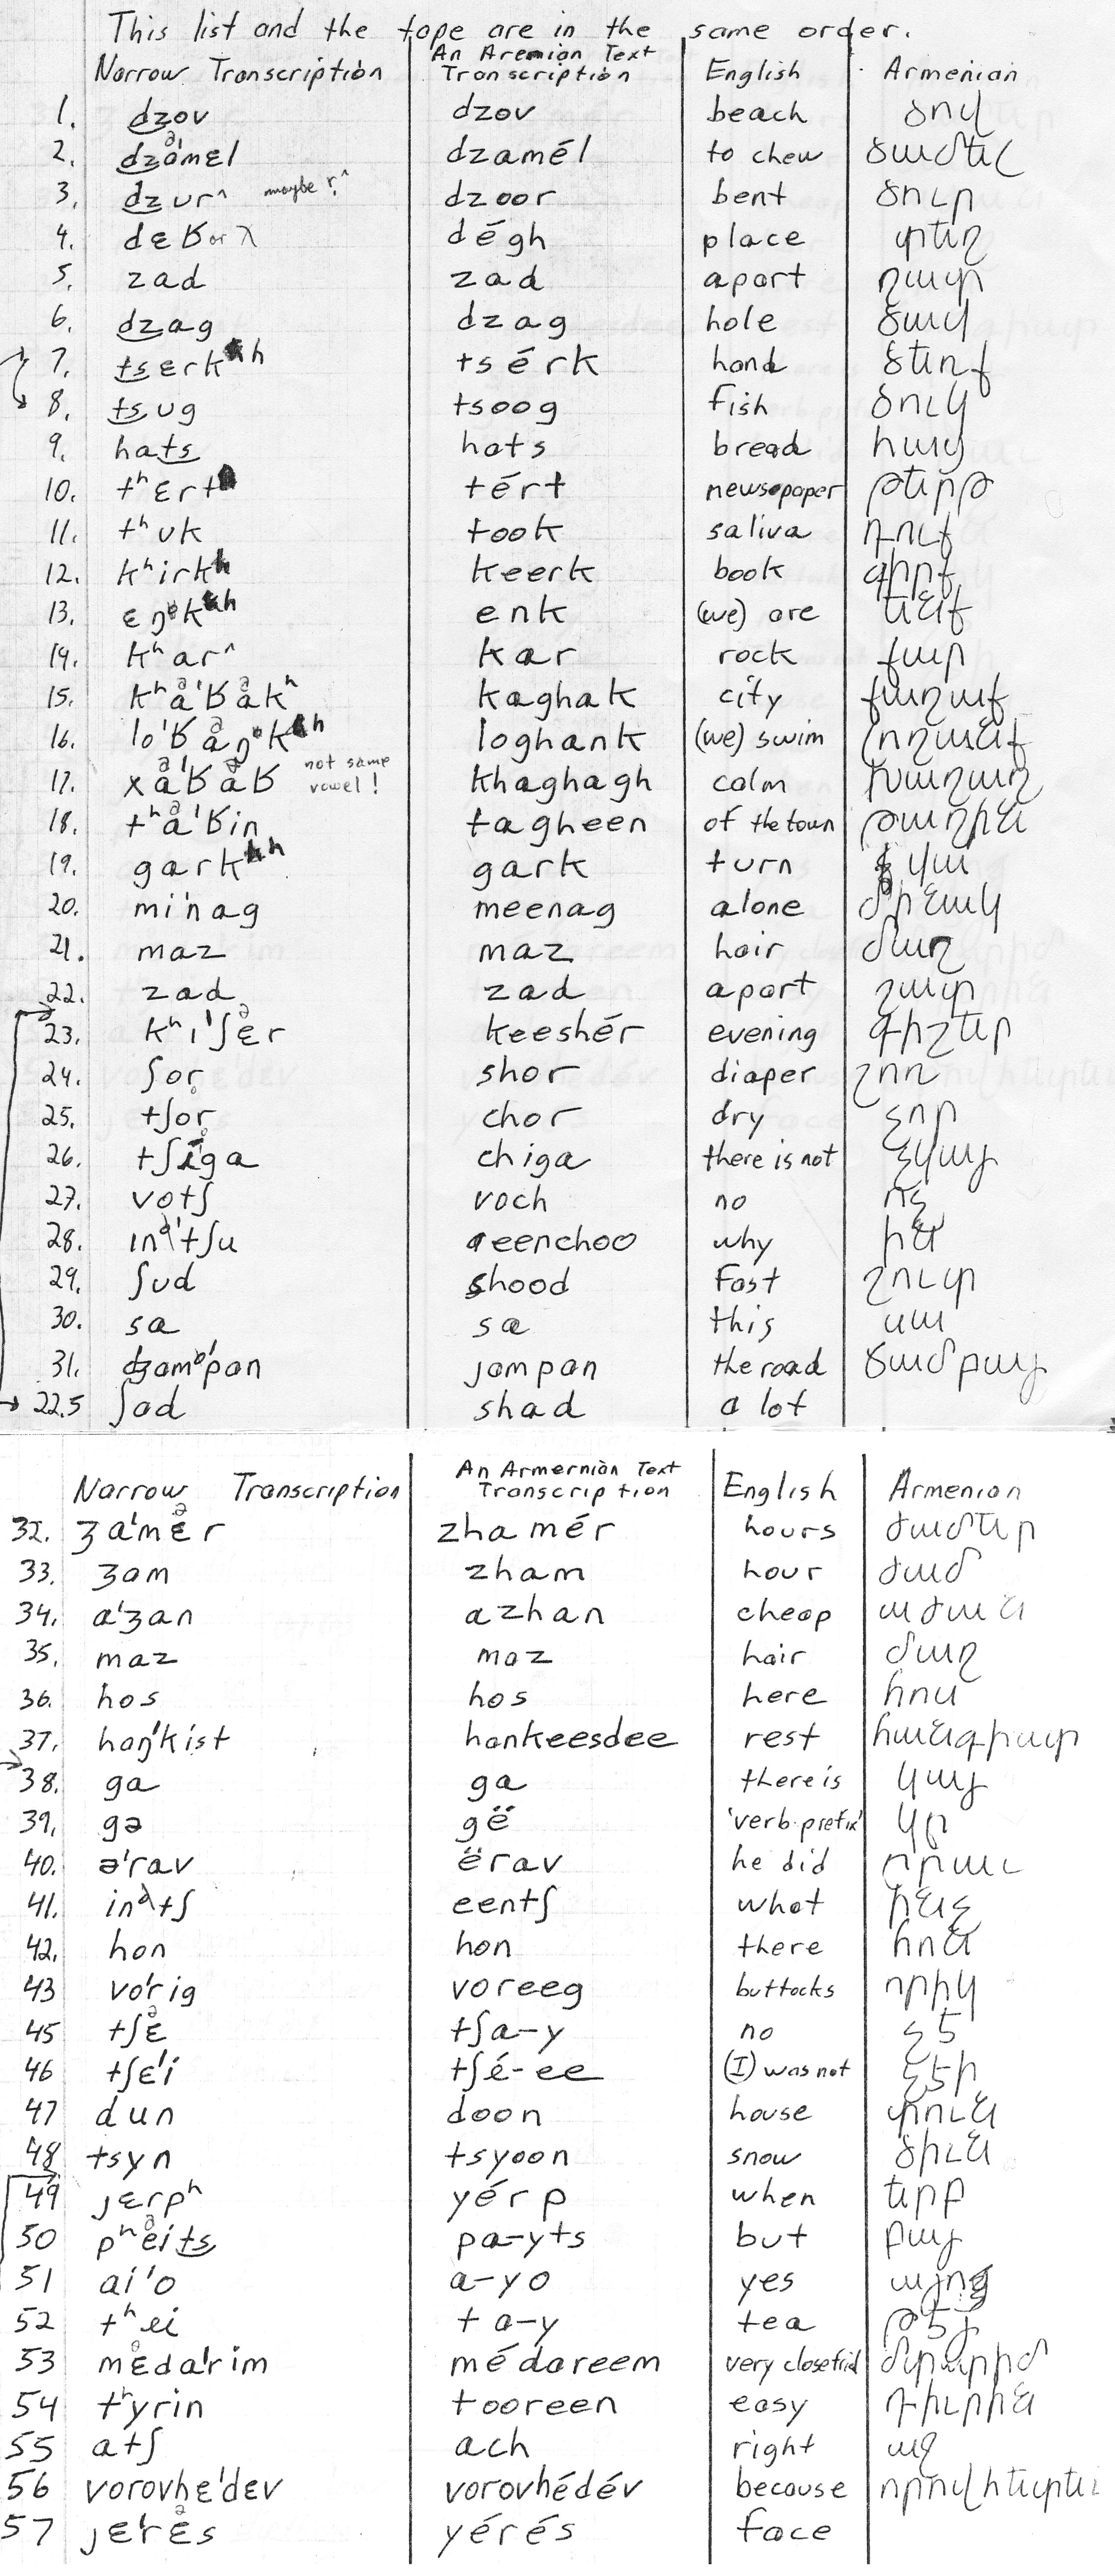 This list and the tape are in the same order.
Narrow Transcription An Aremian Text Transcription English Armenian
1. dzov dzov beach ծով
2. dzamɛl dzamél to chew ծամել
3. dzur^ maybe r^ dzoor bent ծուր
4. dɛʁ or λ dégh place տեղ
5. zad zad apart զատ
6. dzag dzag hole ծակ
7. tsɛrkʰ tsérk hand ձեռք
8. tsug tsoog fish ձուկ
9. hats hats bread հաց
10. tʰɛrt tért newspaper թերթ
11. tʰuk took saliva թուք
12. kʰirkʰ keerk book գիրք
13. ɛŋkʰ enk (we) are ենք
14. kʰar^ kar rock քար
15. kʰa'ʁakʰ kaghak city քաղաք
16. lo'ʁaŋkʰ loghank (we) swim լողանք
17. xa'ʁaʁ not same vowel! khaghagh calm խաղաղ
18. tʰa'ʁin tagheen of the town թաղին
19. garkʰ gark turn
20. mi'nag meenag alone մինակ
21. maz maz hair մազ
22. zad zad apart զատ
23. kʰi'ʃɛr keeshér evening գիշեր
24. ʃor shor diaper շոռ
25. tʃor chor dry չոր
26. tʃiga chiga there is not չկայ
27. votʃ voch no ոչ
28. inə'tʃu eenchoo why ին
29. ʃud shood fast շուտ
30. sa sa this սա
31. dʒam'pan jampan the road ճամբայ
22.5 ʃad shad a lot
Narrow Transcription An Armernian Text Transcription English Armenian
32. ʒa'mɛr zhamér hours ժամեր
33. ʒam zham hour ժամ
34. a'ʒan azhan cheap աժան
35. maz maz hair մազ
36. hos hos here հոս
37. haŋ'kist hankeesdee rest
38. ga ga there is կայ
39. gə gë 'verb prefix' կը
40. ə'rav ërav he did
41. inətʃ eentʃ what ինչ
42. hon hon there հոն
43 vo'rig voreeg buttocks որիկ
45 tʃɛ tʃa-y no չէ
46 tʃɛ'i tʃé-ee (I) was not չէի
47 dun doon house տուն
48 tsyn tsyoon snow ձիւն
49 jɛrpʰ yérp when երբ
50 pʰɛits pa-yts but բայ
51 ai'o a-yo yes
52 tʰei ta-y tea թէյ
53 mɛda'rim médareem very close frid
54 tʰyrin tooreen easy դիւրին
55 atʃ ach right աջ
56 vorovhɛ'dɛv vorovhédév because
57 jɛ'rɛs yérés face